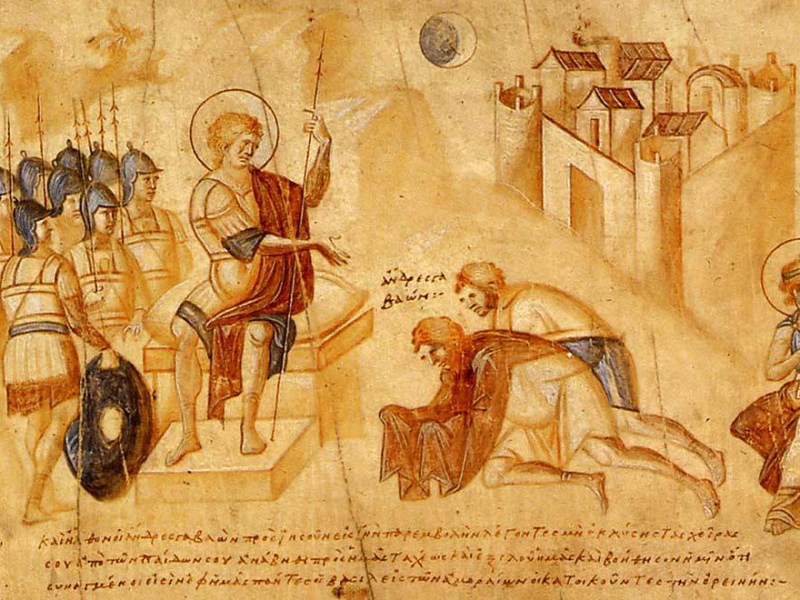 ἄνδρες γα
βαών:-
καὶ ἦλθον οἱ ἄνδρες γαβαὼν πρὸς ἰησοῦν εἰς τὴν παρεμβολὴν λέγοντες μὴ ἐκλύσης τὰς χεῖρας
σου ἀπὸ τῶν παίδων σου ἀνάβηθι πρὸς ἡμᾶς ταχέως καὶ ἐξελοῦ ἡμᾶς καὶ βοήθησον ἡμῖν ὅτι
συνηγμένοι εἰσὶν ἐφ ἡμᾶς πάντες οἱ βασιλεῖς τῶν ἀμοραίων οἱ κατοικοῦντες τὴν ὀρεινήν:-